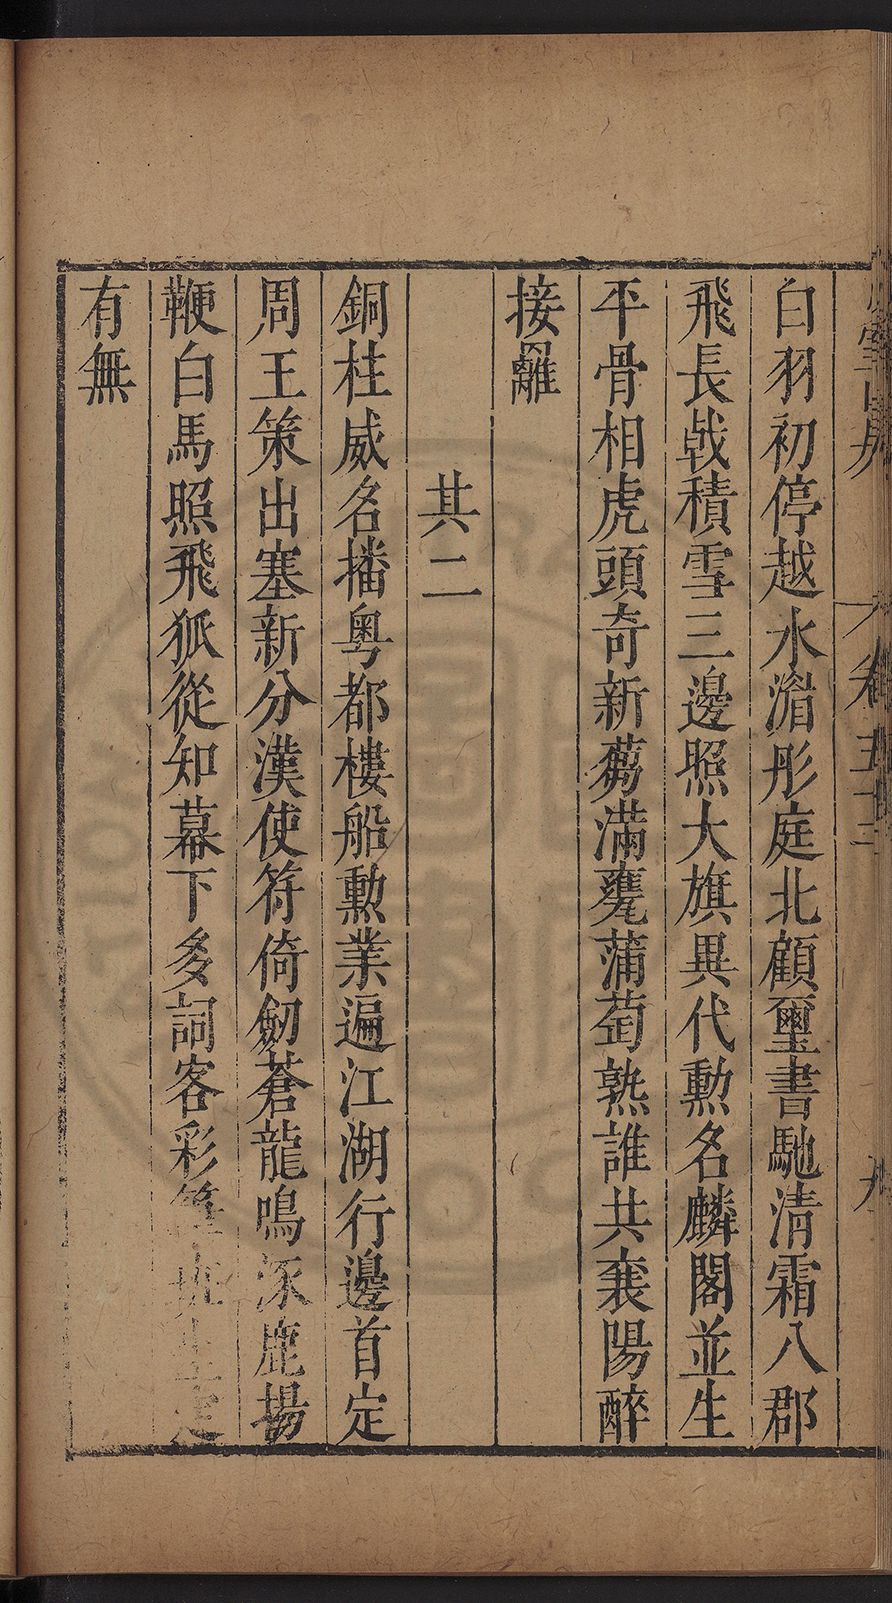 白羽初停越水湄彤庭北顧璽書馳清霜八郡
飛長戟積雪三邊照大旗異代勲名麟閣並生
平骨相虎頭奇新蒭滿甕蒲萄熟誰共襄陽醉
接䍦
其二
銅柱威名播粵都樓船勲業遍江湖行邊首定
周王策出塞新分漢使符倚劒蒼龍鳴涿鹿揚
鞭白馬照飛狐從知幕下多詞客彩筆班生定
有無
卷五十三
九